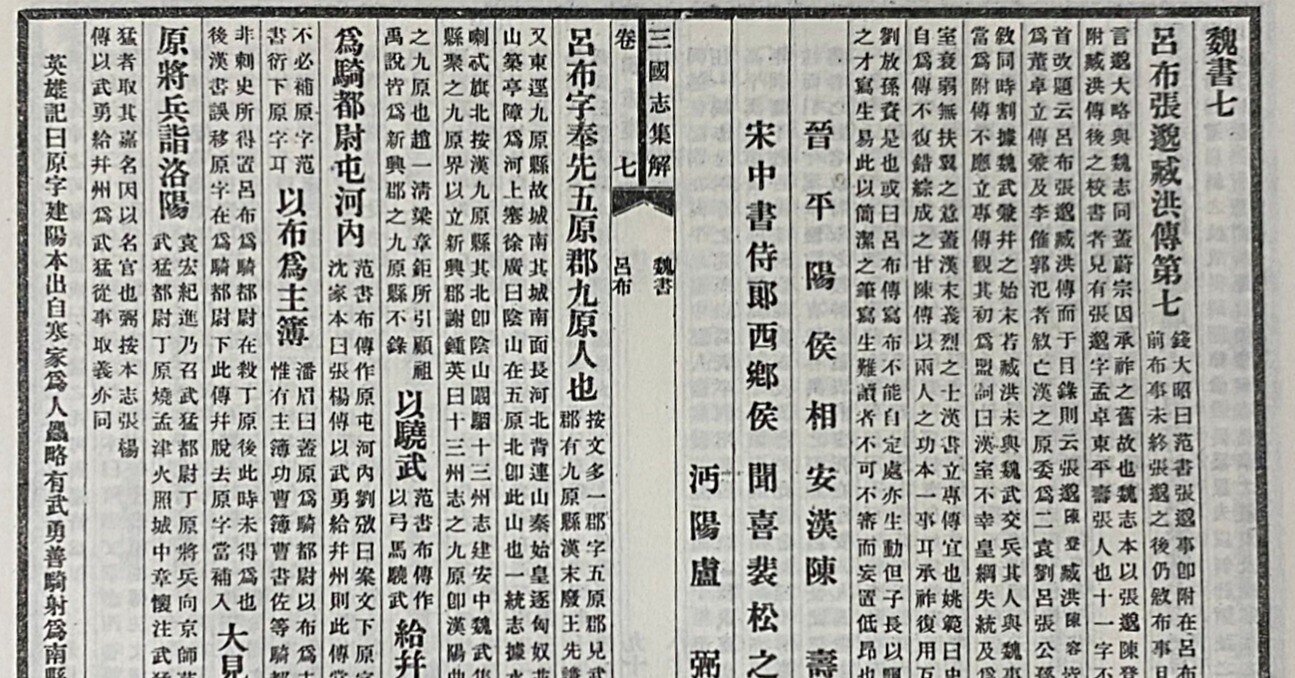 魏書七
呂布張邈臧洪傳第七
錢大昭曰范書張邈事卽附在呂布
前布事未終張邈之後仍敘布事且
言邈大略與魏志同蓋蔚宗因承祚之舊故也魏志本以張邈陳登
附臧洪傳後之校書者見有張邈字孟卓東平壽張人也十一字不
首改題云呂布張邈臧洪傳而于目錄則云張邈陳登臧洪陳容皆
爲董卓立傳兼及李傕郭汜者敘亡漢之原委爲二袁劉呂張公孫
敘同時割據魏武兼并之始末若臧洪未與魏武交兵其人與魏事
當爲附傳不應立專傳觀其初爲盟詞曰漢室不幸皇綱失統及爲
室衰弱無扶翼之意蓋漢末義烈之士漢書立專傳宜也姚範曰史
自爲傳不復錯綜成之甘陳傳以兩人之功本一事耳承祚復用五
劉放孫資是也或曰呂布傳寫布不能自定處亦生動但子長以
之才寫生易此以簡潔之筆寫生難讀者不可不審而妄置低昂也
晉平陽侯相安漢陳壽
宋中書侍郞西鄕侯聞喜裴松之
沔陽盧弼
三國志集解
卷七
魏書
呂布
呂布字奉先五原郡九原人也
按文多一郡字五原郡見武
郡有九原縣漢末廢王先謙
又東逕九原縣故城南其城南面長河北背連山秦始皇逐匈奴并
山築亭障爲河上塞徐廣曰陰山在五原北卽此山也一統志據水
喇忒旗北按漢九原縣其北卽陰山闞駰十三州志建安中魏武集
縣聚之九原界以立新興郡謝鍾英曰十三州志之九原卽漢陽曲
之九原也趙一清梁章鉅所引顧祖
禹說皆爲新興郡之九原縣不錄
以驍武
范書布傳作
以弓馬驍武
給幷
爲騎都尉屯河內
范書布傳作原屯河內劉攽曰案文下原字
沈家本曰張楊傳以武勇給幷州則此傳當
不必補原字范
書衍下原字耳
以布爲主簿
潘眉曰蓋原爲騎都尉以布爲主
惟有主簿功曹簿曹書佐等騎都
非刺史所得置呂布爲騎都尉在殺丁原後此時未得爲也
後漢書誤移原字在爲騎都尉下此傳幷脫去原字當補入
大見
原將兵詣洛陽
袁宏紀進乃召武猛都尉丁原將兵向京師范
武猛都尉丁原燒孟津火照城中章懷注武猛
猛者取其嘉名因以名官也弼按本志張楊
傳以武勇給幷州爲武猛從事取義亦同
英雄記曰原字建陽本出自寒家爲人麤略有武勇善騎射爲南縣